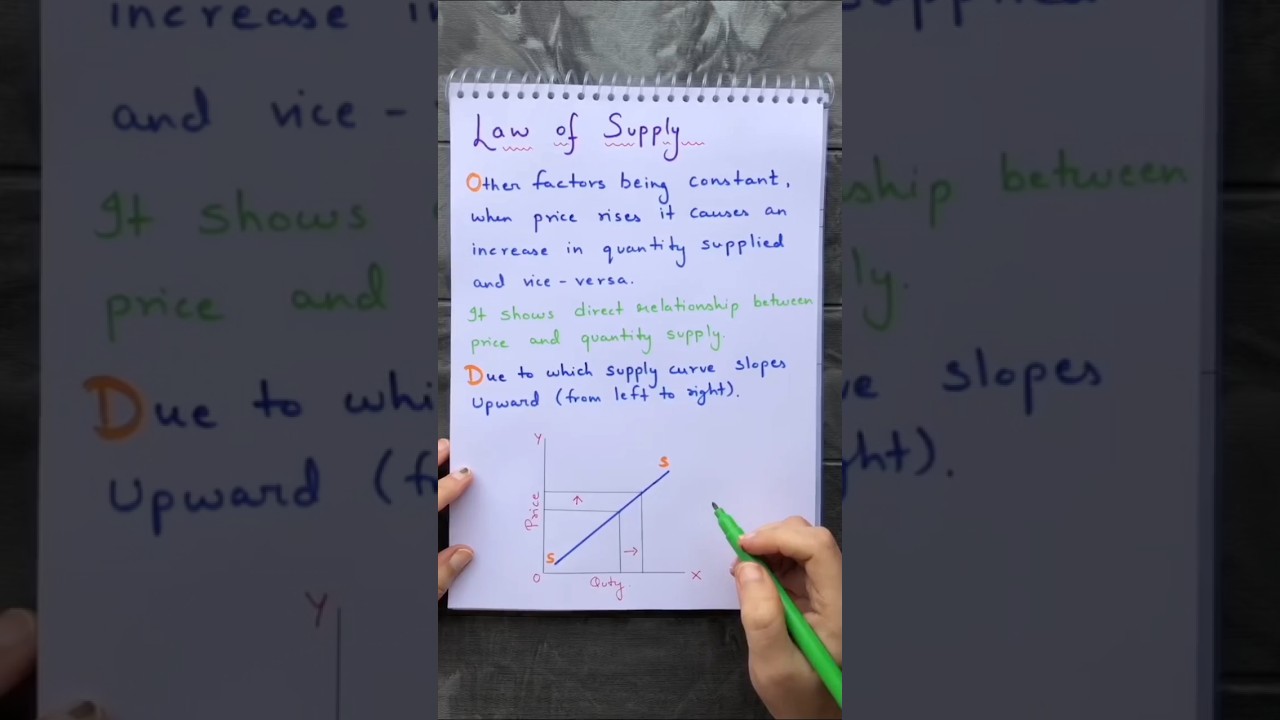 Law of Supply
Other factors being constant,
when price rises it causes an
increase in quantity supplied
and vice-versa.
It shows direct relationship between
price and quantity supply.
Due to which supply curve slopes
Upward (from left to right).
Y
S
Price
S
O
Quty.
X